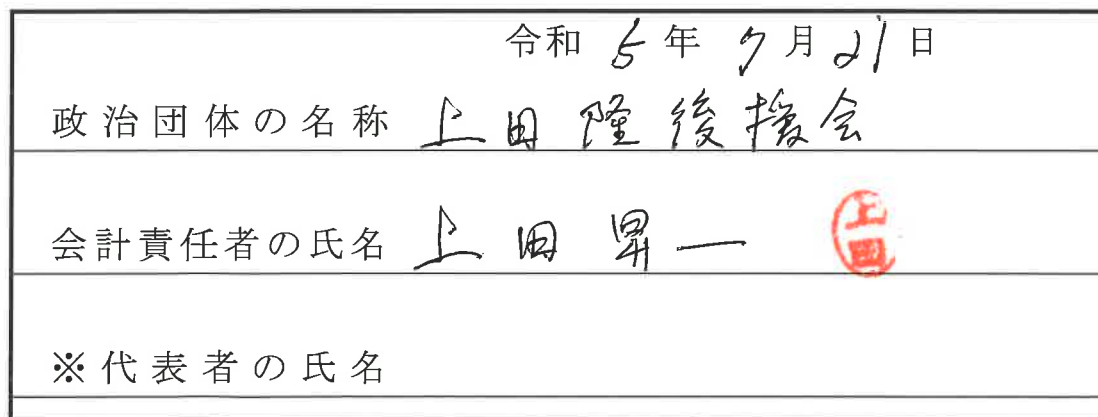 令和 5 年 7 月 21 日
政治団体の名称 上田隆後援会
会計責任者の氏名 上田昇一 上田
※代表者の氏名